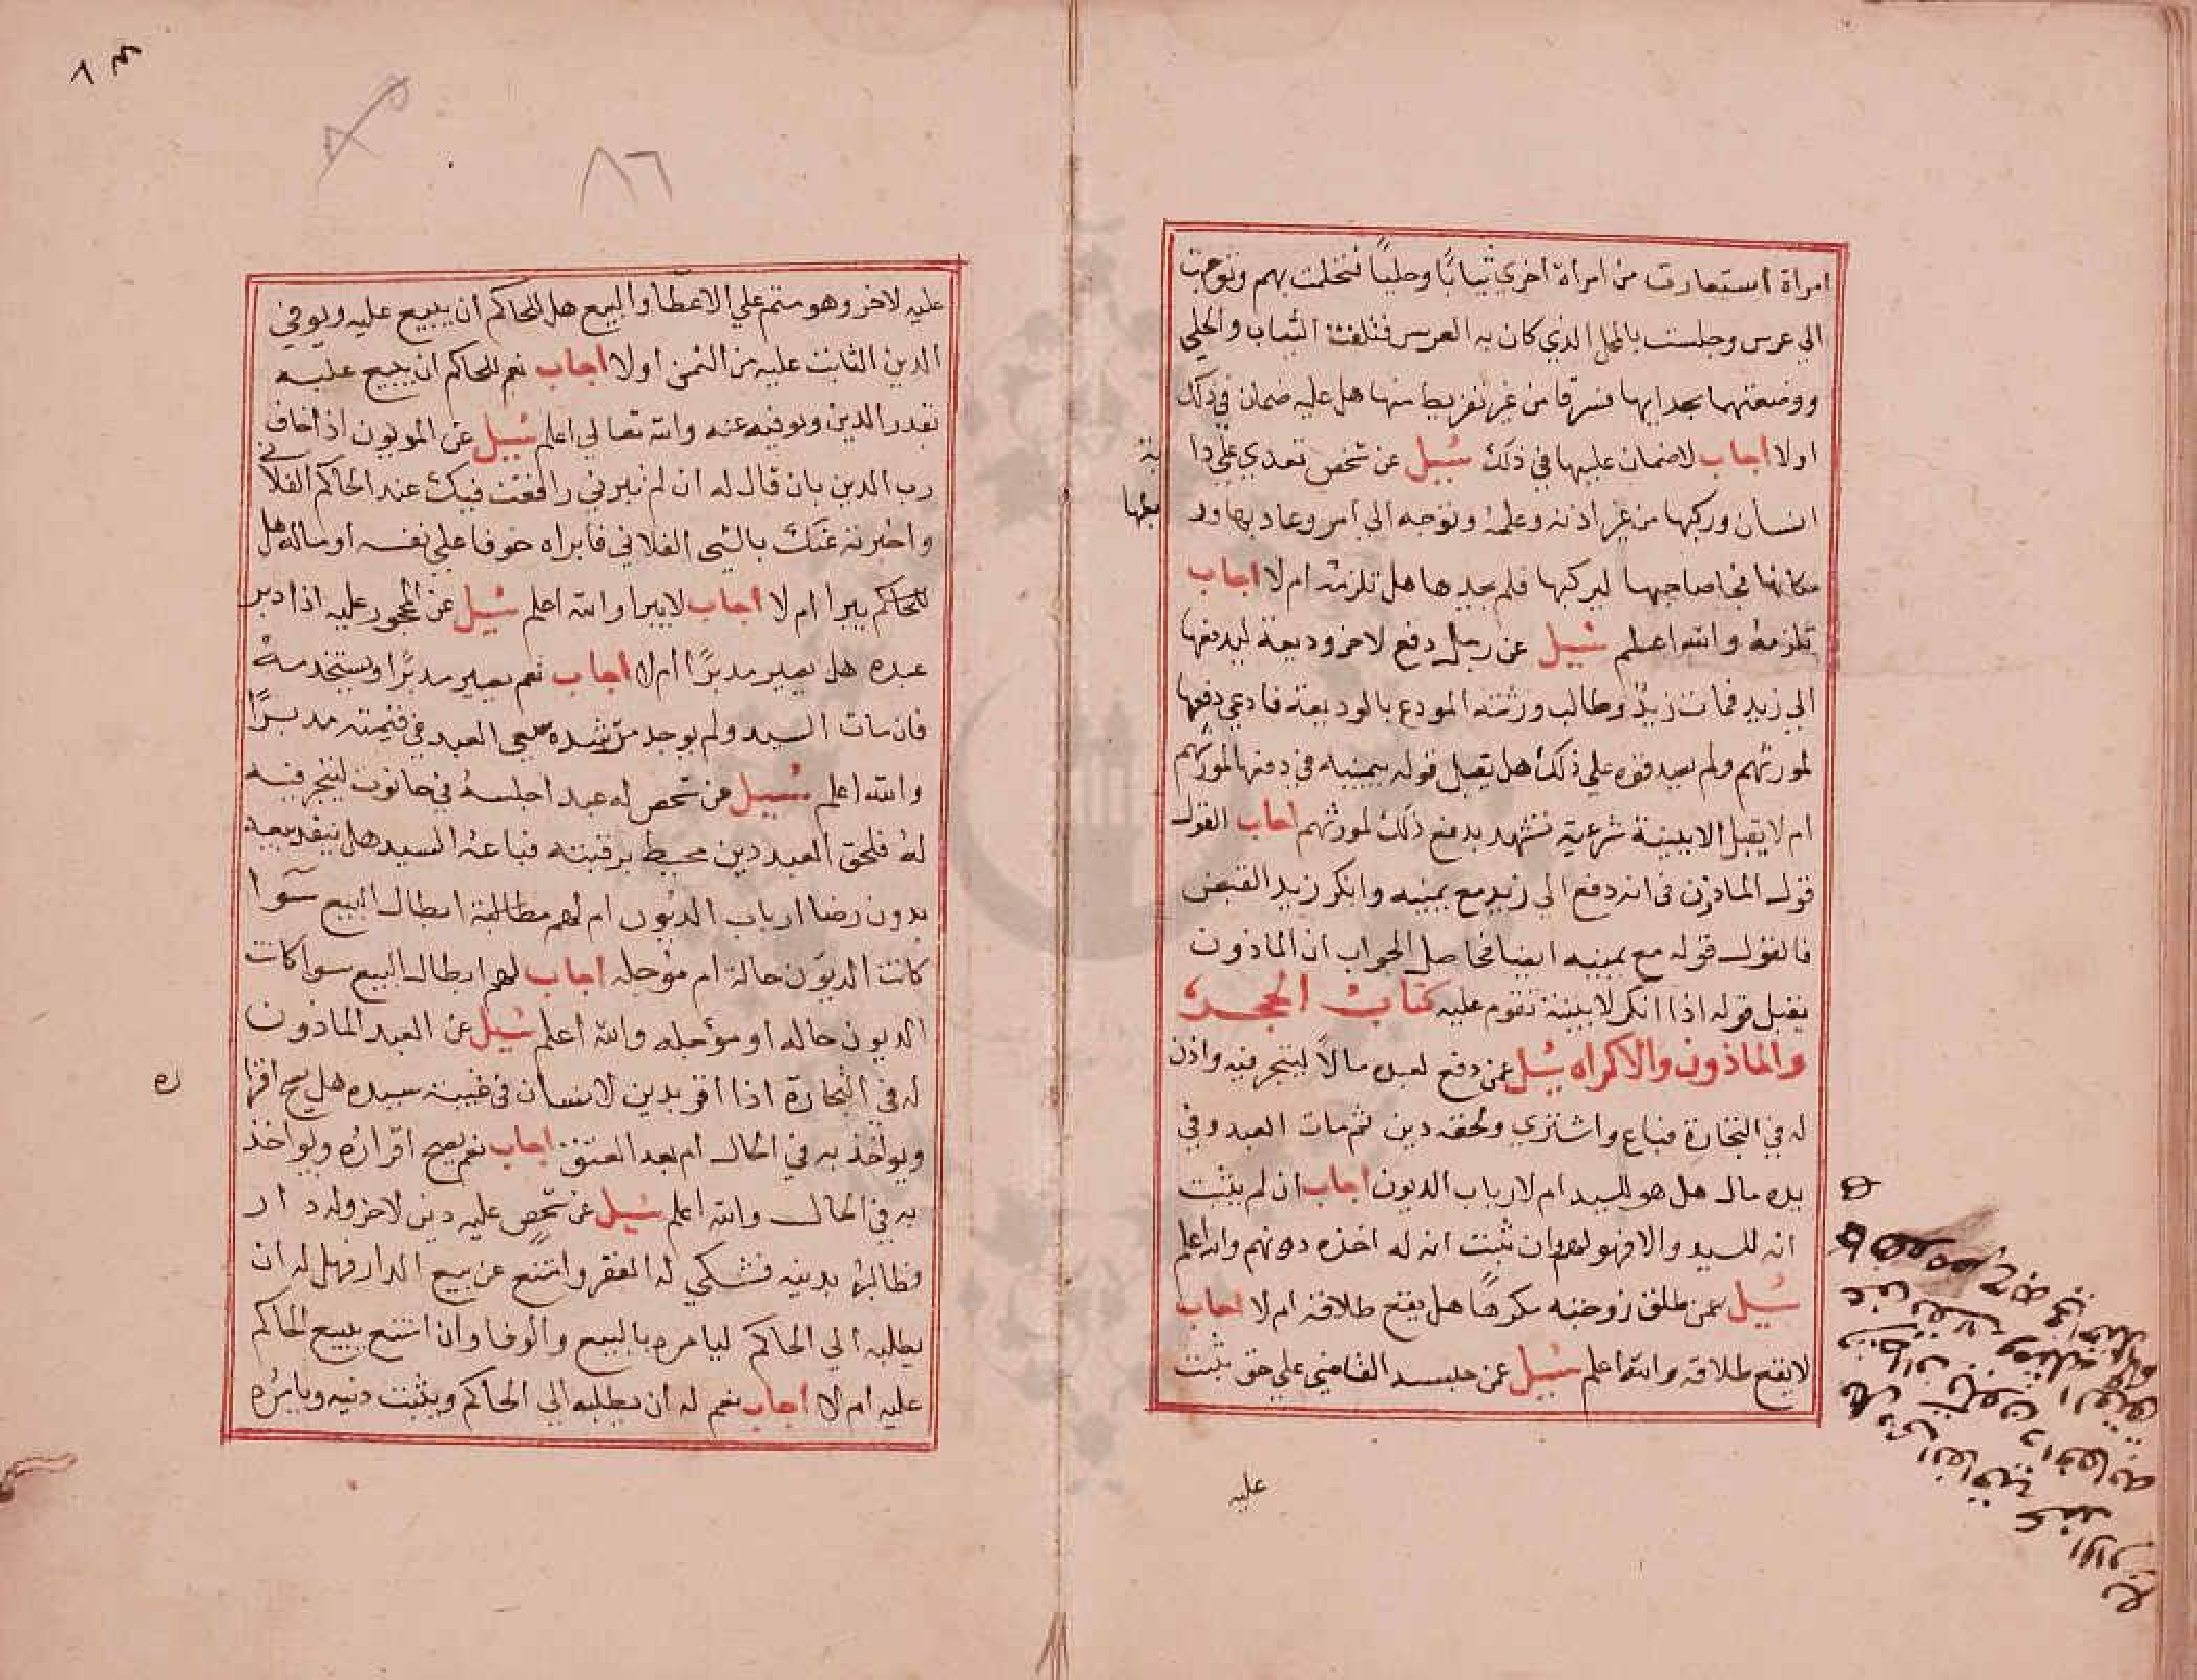 امراة استعارت من امراة اخري ثيابًا وحليًا فتخلت بهم وتوجهت
الي عرس وجلست بالمحل الذي كان به العرس فتلفت الثياب والحلي
ووضعتهما بحدايها فسرقا من غير تفريط منها هل عليه ضمان في ذلك
اولا اجاب لا ضمان عليها في ذلك سُيل عن شخص تعدي علي دا
بة
انسان وركبها من غير اذنه وعلمه وتوجه الي امر وعاد بها ور
بطها
مكانها فجا صاحبها ليركبها فلم يجدها هل تلزمه ام لا اجاب
تلزمه والله اعلم سُيل عن رجل دفع لاخر وديعة ليدفعها
الي زيد فمات زيد وطالب ورثته المودع بالوديعة فادعي دفعها
لمورثهم ولم يصدقوه علي ذلك هل يقبل قوله بيمينه في دفعها لمورثهم
ام لا يقبل الا ببينة شرعية تشهد بدفع ذلك لمورثهم اجاب القول
قول الماذون في انه دفع الي زيد مع يمينه وانكر زيد القبض
فالقول قوله مع يمينه ايضا فحاصل الجواب ان الماذون
يقبل قوله اذا انكر لا ببينة تقوم عليه كتاب الحجر
والماذون والاكراه سُيل عمن دفع لعبده مالاً ليتجر فيه واذن
له في التجارة فباع واشتري ولحقه دين ثم مات العبد وفي
يده مال هل هو للسيد ام لارباب الديون اجاب ان لم يثبت
انه للسيد والا فهو لهم وان ثبت انه له اخذه دونهم والله اعلم
سُيل عمن طلق زوجته مكرهًا هل يقع طلاقه ام لا اجاب
لا يقع طلاقه والله اعلم سُيل عن حبسه القاضي علي حق ثبت
عليه
٨٦
عليه لاخر وهو ممتنع علي الاعطا والبيع هل للحاكم ان يبيع عليه ويوفي
الدين الثابت عليه من الثمن اولا اجاب نعم للحاكم ان يبيع عليه
بقدر الدين ويوفيه عنه والله تعالي اعلم سُيل عن المديون اذا خاف
رب الدين بان قال له ان لم تبرني رافعت فيك عند الحاكم الفلاني
واخبرته عنك بالشي الفلاني فابراه خوفا علي نفسه او ماله هل
للحاكم يبرا ام لا اجاب لا يبرا والله اعلم سُيل عن المحجور عليه اذا دبر
عبده هل يصير مدبرًا ام لا اجاب نعم يصير مدبرًا ويستخدمه
فان مات السيد ولم يوجد من رشده سعي العبد في قيمته مدبرًا
والله اعلم سُيل عن شخص له عبد اجلسه في حانوت ليتجر فيه
له فلحق العبد دين محيط برقبته فباعه السيد هل ينفد بيعه
بدون رضا ارباب الديون ام لهم مطالبة ابطال البيع سوا
كانت الديون حالة ام مؤجله اجاب لهم ابطال البيع سوا كانت
الديون حاله او مؤجله والله اعلم سُيل عن العبد الماذون
له في التجارة اذا اقر بدين لانسان في غيبة سيده هل يصح اقرا
ره
ويواخذ به في الحال ام بعد العتق اجاب نعم يصح اقراره ويواخذ
به في الحال والله اعلم سُيل عن شخص عليه دين لاخر وله دار
فطالبه بدينه فشكي له الفقر وامتنع عن بيع الدار فهل له ان
يطلبه الي الحاكم ليامره بالبيع والوفا وان امتنع يبيع الحاكم
عليه ام لا اجاب نعم له ان يطلبه الي الحاكم ويثبت دينه ويامره